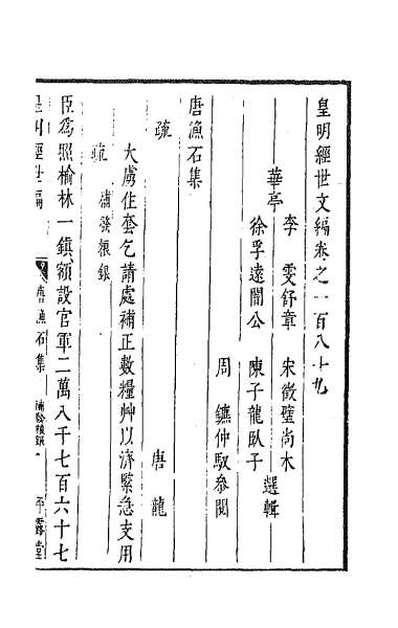 皇明經世文編卷之一百八十九
華亭
李雯舒章 宋徵璧尚木
徐孚遠闇公 陳子龍臥子 選輯
周鑣仲馭參閱
唐漁石集
疏 唐龍
大虜住套乞請處補正數糧艸以濟緊急支用
疏 補發糧銀
臣爲照榆林一鎮額設官軍二萬八千七百六十七
皇明經世文編 唐漁石集 補發糧銀 一 平露堂